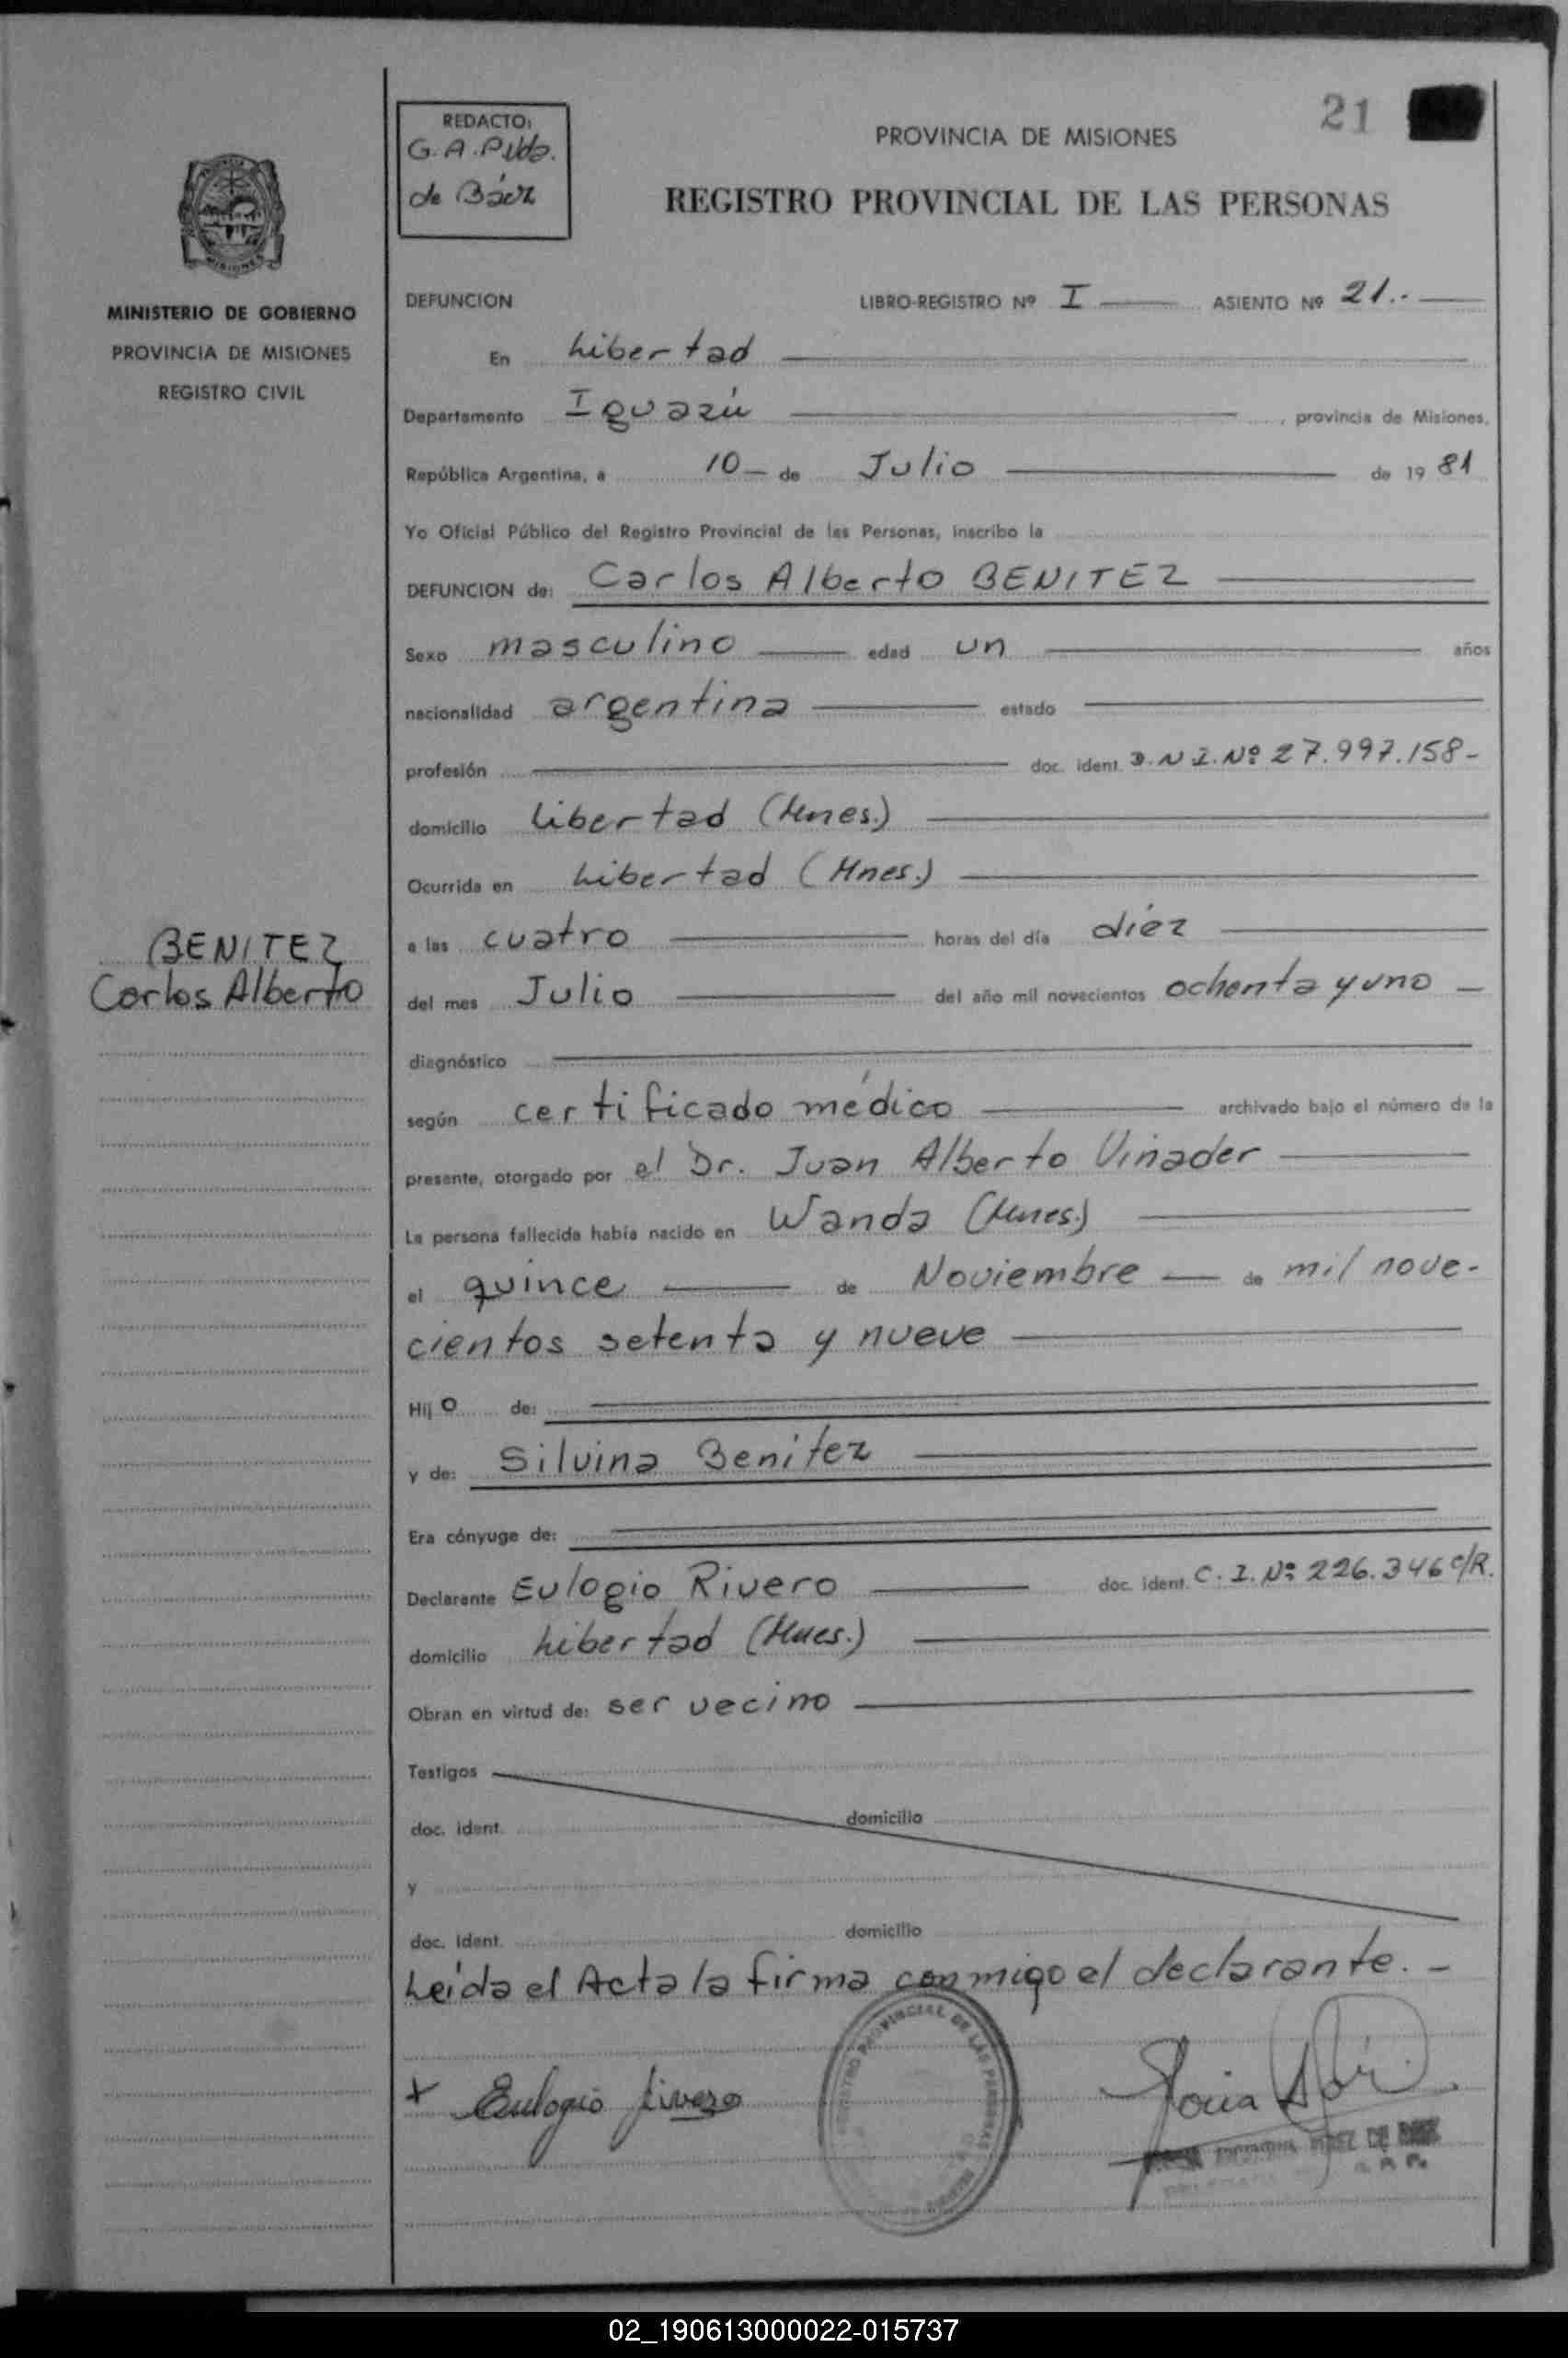 21
REDACTO:
G. A.
de Báez
PROVINCIA DE MISIONES
REGISTRO PROVINCIAL DE LAS PERSONAS
MISIONES
MINISTERIO DE GOBIERNO
PROVINCIA DE MISIONES
REGISTRO CIVIL
DEFUNCION LIBRO-REGISTRO Nº I ASIENTO Nº 21.-
En Libertad
Departamento Iguazú, provincia de Misiones,
República Argentina, a 10 - de Julio de 19 81
Yo Oficial Público del Registro Provincial de las Personas, inscribo la
DEFUNCION de: Carlos Alberto BENITEZ
Sexo masculino edad un años
nacionalidad argentina estado
profesión doc. ident. D.N.I. Nº 27.997.158-
domicilio Libertad (Mnes.)
Ocurrida en Libertad (Mnes.)
BENITEZ
Carlos Alberto
a las cuatro horas del día diez
del mes Julio del año mil novecientos ochenta y uno -
diagnóstico
según certificado médico archivado bajo el número de la
presente, otorgado por el Dr. Juan Alberto Vinader
La persona fallecida había nacido en Wanda (Mnes.)
el quince de Noviembre - de mil nove-
cientos setenta y nueve
Hij o de:
y de: Silvina Benitez
Era cónyuge de:
Declarante Eulogio Rivero doc. ident. C. I. Nº 226.346 c/R.
domicilio Libertad (Mnes.)
Obran en virtud de: ser vecino
Testigos
doc. ident. domicilio
y
doc. ident. domicilio
Leída el Acta la firma conmigo el declarante. -
REGISTRO PROVINCIAL DE LAS PERSONAS
+ Eulogio Rivero
02_190613000022-015737